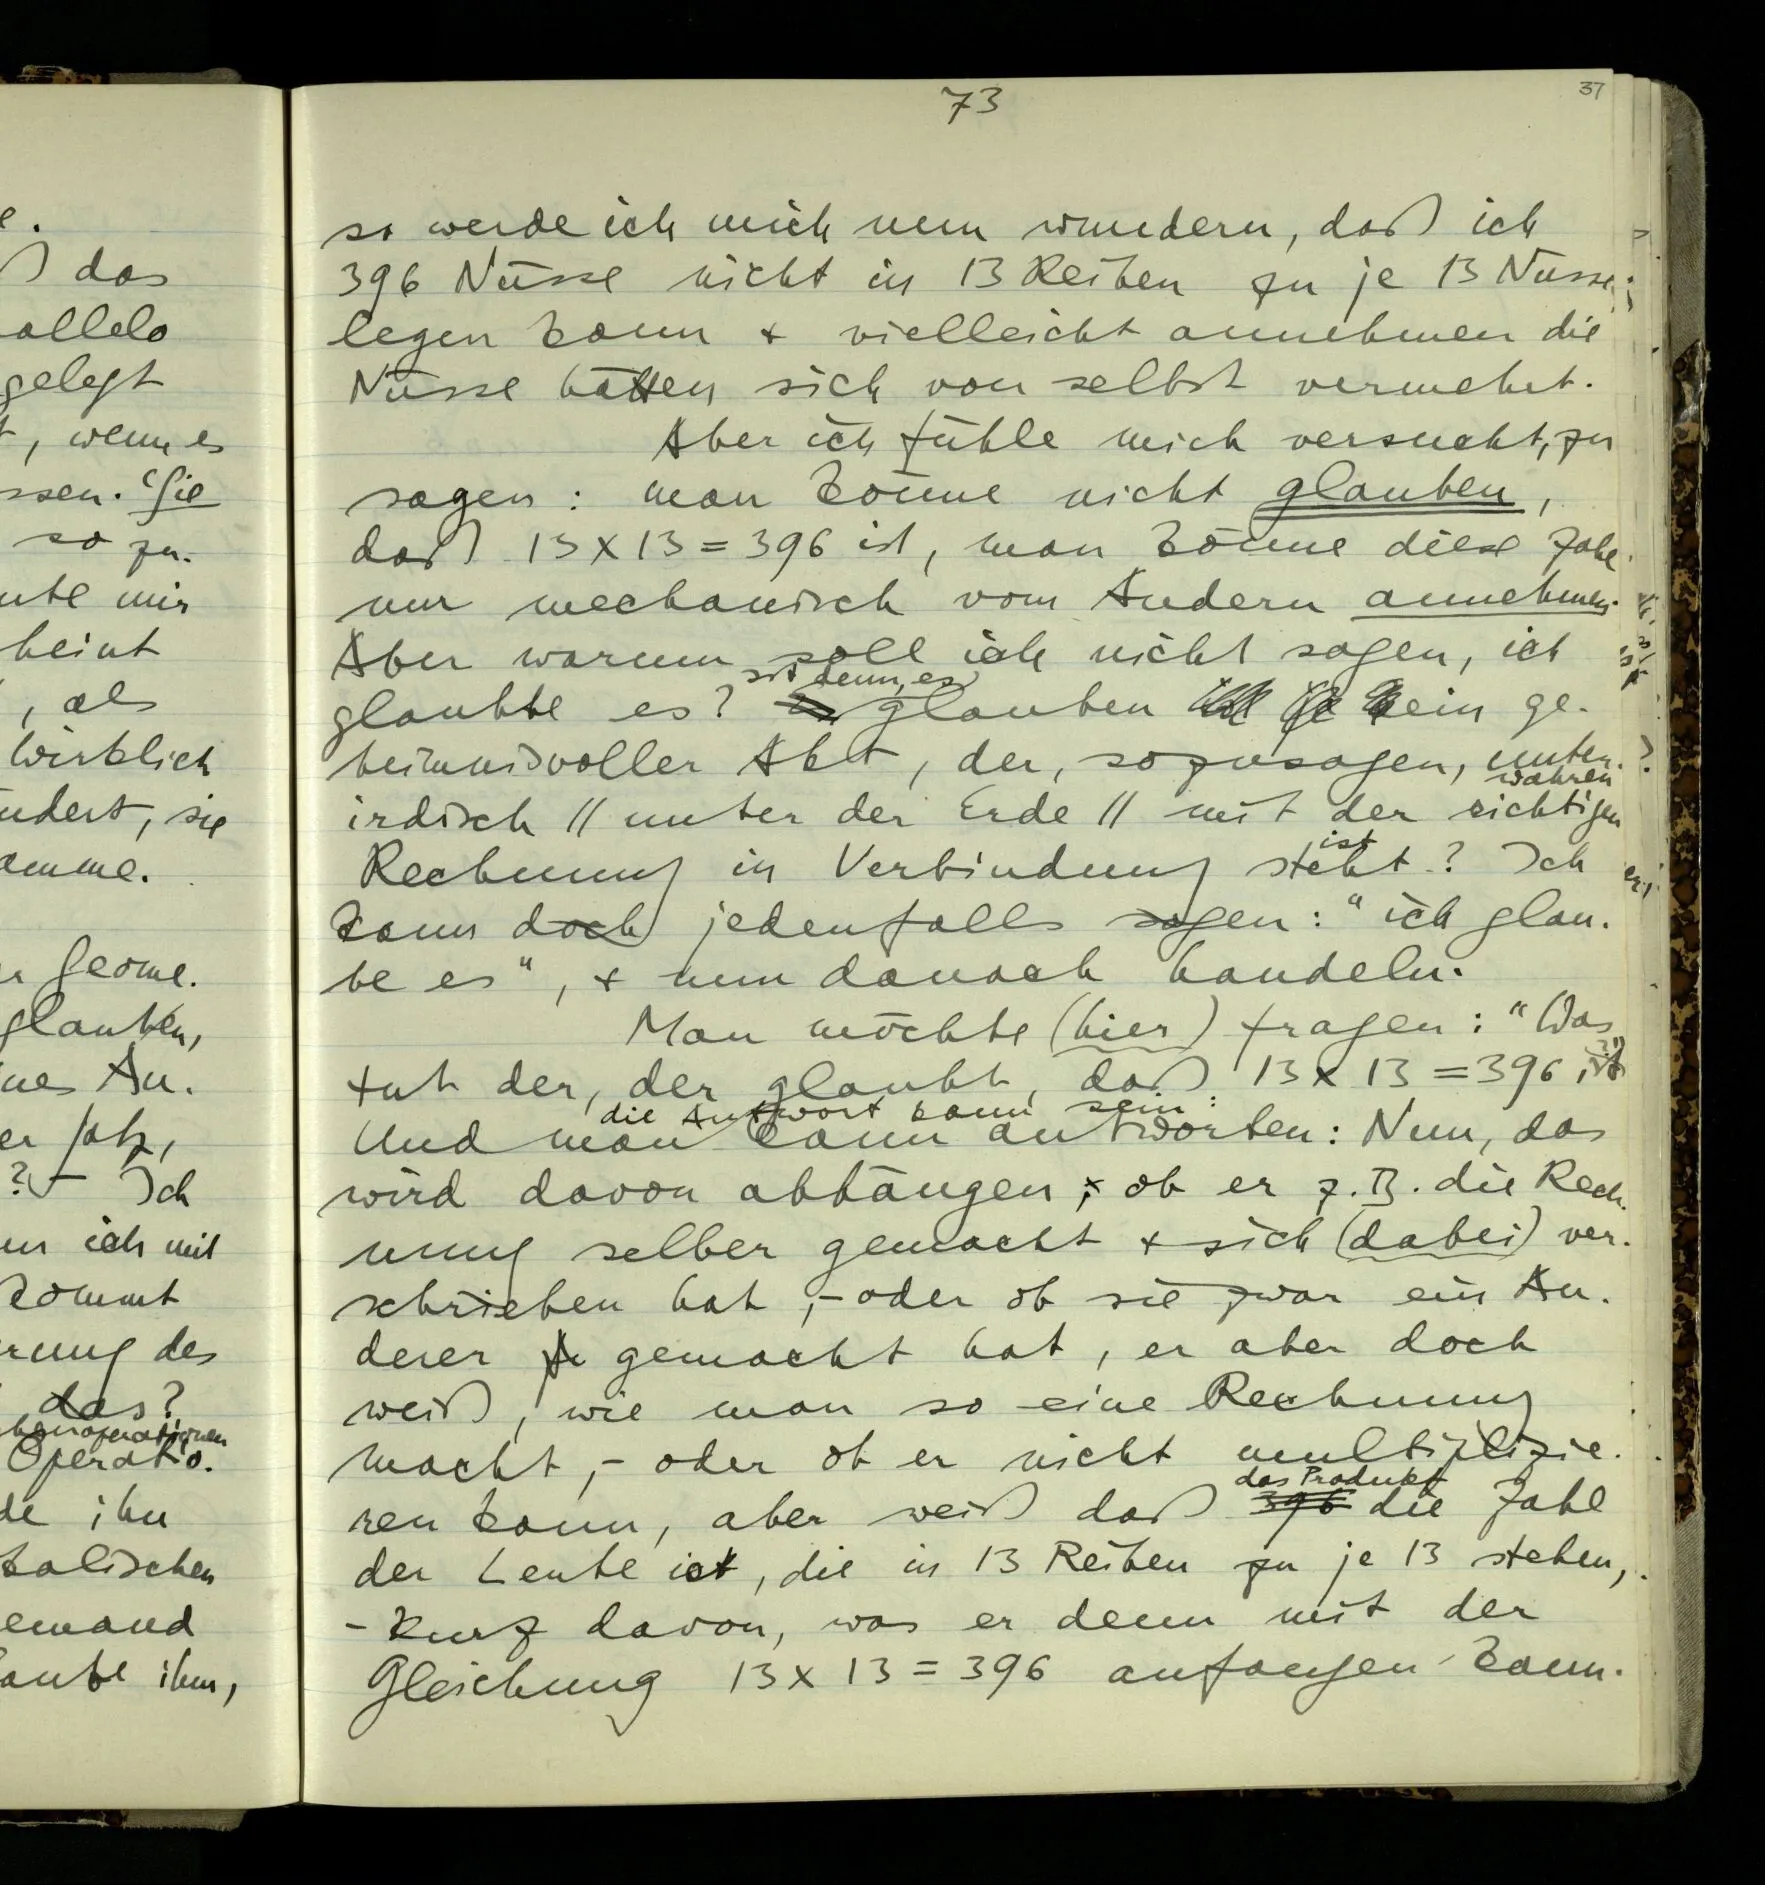 73
37
so werde ich mich nun wundern, daß ich
396 Nüsse nicht in 13 Reihen zu je 13 Nüsse
legen kann & vielleicht annehmen die
Nüsse hätten sich von selbst vermehrt.
Aber ich fühle mich versucht, zu
sagen: man könne nicht glauben,
daß 13×13=396 ist, man könne diese Zahl
nur mechanisch vom Andern annehmen.
Aber warum soll ich nicht sagen, ich
ist denn, es
glaubte es? glauben ein ge-
heimnisvoller Akt, der, sozusagen, unter-
wahren
irdisch // unter der Erde // mit der richtigen
ist
Rechnung in Verbindung steht? Ich
kann doch jedenfalls sagen: "ich glau-
be es", & nun danach handeln.
Man möchte (hier) fragen: "Was
tut der, der glaubt, daß 13×13=396 ist
die Antwort kann sein:
Und man kann antworten: Nun, das
wird davon abhängen, ob er z.B. die Rech-
nung selber gemacht & sich (dabei) ver-
schrieben hat, – oder ob sie zwar ein An-
derer A gemacht hat, er aber doch
weiß, wie man so eine Rechnung
macht, – oder ob er nicht multiplizie-
das Produkt
ren kann, aber weiß daß 396 die Zahl
der Leute ist, die in 13 Reihen zu je 13 stehen,
– kurz davon, was er denn mit der
Gleichung 13×13=396 anfangen kann.
e.
ß das
gelegt
, wenn es
ssen. "Sie
so zu-
mir
heint
, als
wirklich
ändert, sie
omme.
r Geome-
glauben,
nes An-
er Satz,
? – Ich
nn ich mit
kommt
rung des
das?
Operatio-
de ihn
kalischen
emand
aube ihm,